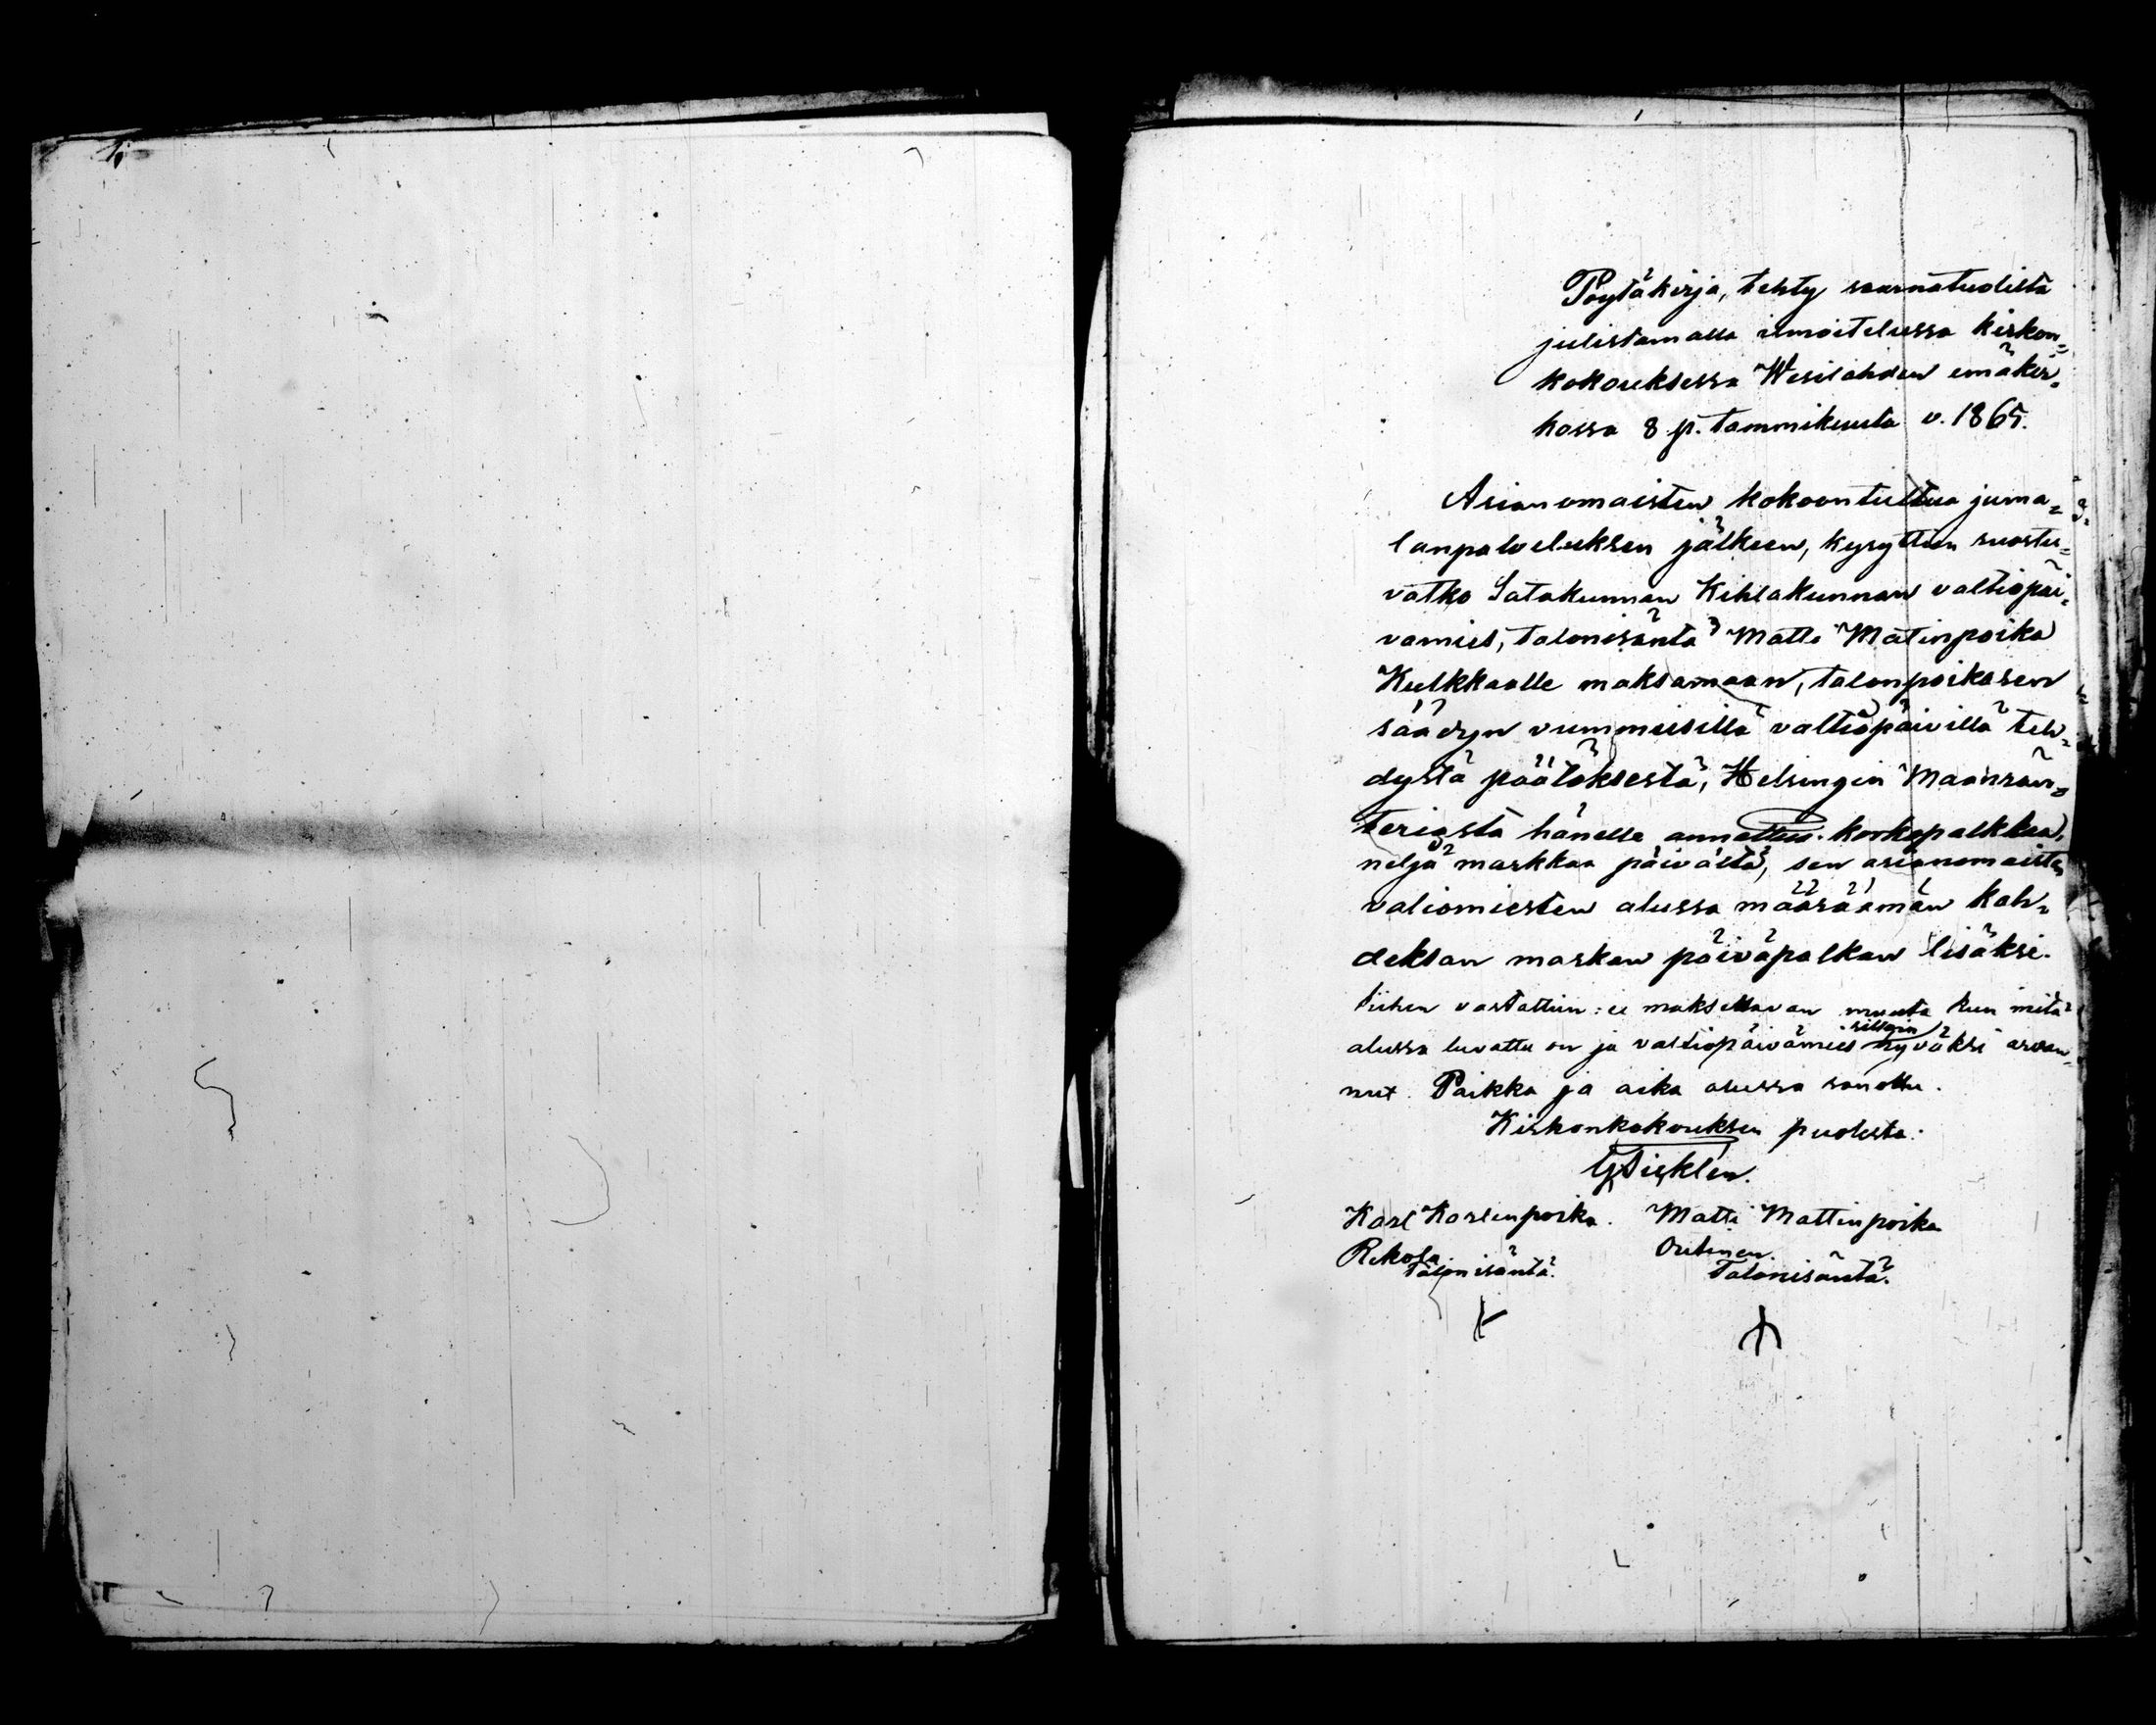 Pöytäkirja, tehty saarnatuolista
julistamalla ilmoitelussa kirkon=
kokouksessa Wesilahden emäkir=
kossa 8 p. tammikuuta v. 1865.
Asianomaisten kokoontultua juma=
lanpalveluksen jälkeen, kysyttiin suostu=
vatko Satakunnan Kihlakunnan valtiopäi=
vämies, talonisäntä Matti Matinpoika
Kulkkaalle maksamaan, talonpoikasen
säädyn viimmeisillä valtiopäivillä teh=
dystä päätöksestä, Helsingin Maanrän=
teriasta hänelle annettua korkopalkkaa,
neljä markkaa päivältä, sen asianomaisten
valiomiesten alussa määräämän kah=
deksan markan päiväpalkan lisäksi.
Siihen vastattiin: ei maksettavan muuta kun mitä
alussa luvattu on ja valtiopäivämies silloin hyväksi arvan=
nut. Paikka ja aika alussa sanottu.
Kirkonkokouksen puolesta:
Karl Karlinpoika. Matti Mattinpoika
Rekola Outinen.
Talonisäntä. Talonisäntä.